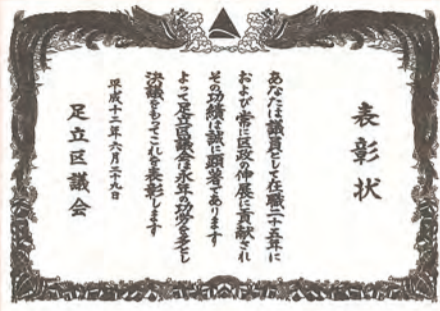 表彰状
あなたは議員として在職二十五年に
および常に区政の伸展に貢献され
その功績は誠に顕著であります
よって足立区議会は永年の功労を多とし
決議をもってこれを表彰します
平成十二年六月二十九日
足立区議会